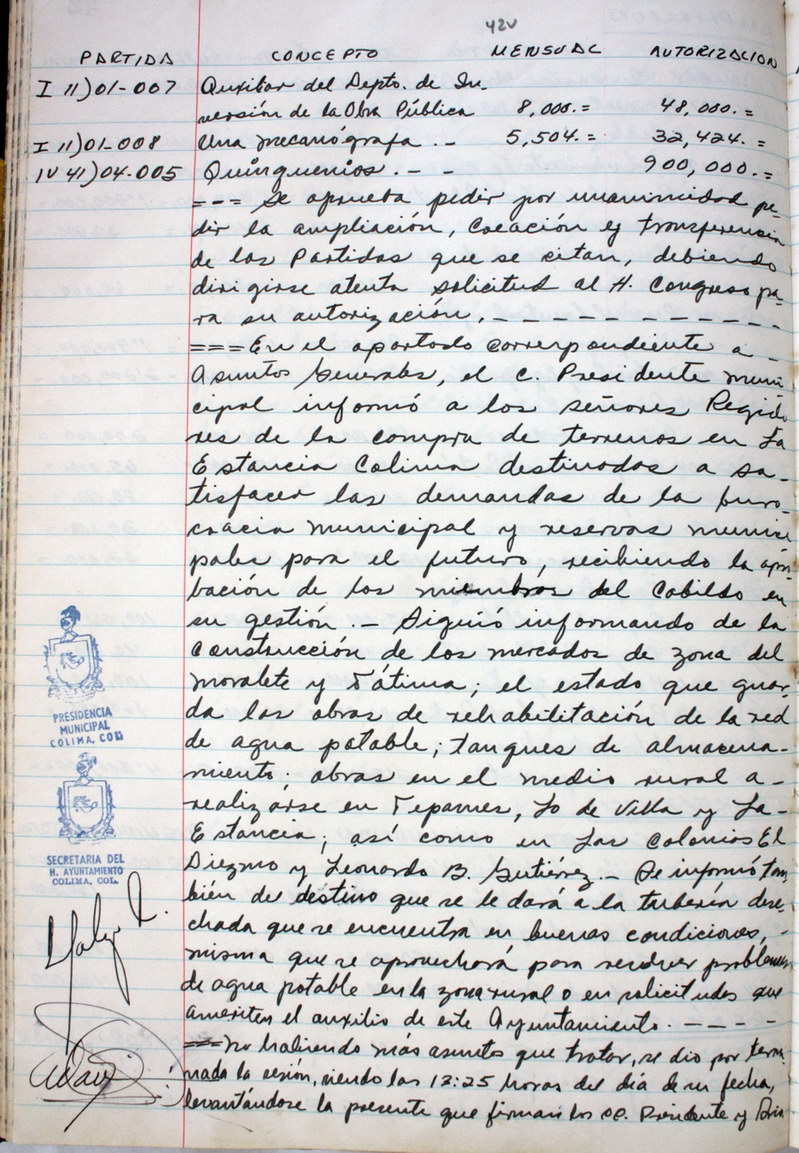 42v
PARTIDA CONCEPTO MENSUAL AUTORIZACION
I 11)01-007 Auxiliar del Depto. de In-
versión de la Obra Pública 8,000.= 48,000.=
I 11)01-008 Una mecanógrafa .- 5,504.= 32,424.=
IV 41)04-005 Quinquenios. - - 900,000.=
=-= Se aprueba pedir por unanimidad pe-
dir la ampliación, creación y transferencia
de las Partidas que se citan, debiendo
dirigirse atenta solicitud al H. Congreso pa-
ra su autorización. - - - - - - - - - - -
===En el apartado correspondiente a -
Asuntos Generales, el C. Presidente muni-
cipal informó a los señores Regido
res de la compra de terrenos en La
Estancia Colima destinados a sa-
tisfacer las demandas de la buro-
cracia municipal y reservas munici
pales para el futuro, recibiendo la apro-
bación de los miembros del Cabildo en
su gestión. - Siguió informando de la
construcción de los mercados de zona del
moralete y Fátima; el estado que guar-
da las obras de rehabilitación de la red
de agua potable; tanques de almacena-
miento; obras en el medio rural a -
realizárse en Tepames, Lo de Villa y La-
Estancia; así como en las colonias El
Diezmo y Leonardo B. Gutiérrez. - Se informó tam
bién de destino que se le dará a la tubería dese-
chada que se encuentra en buenas condiciones, -
misma que se aprovechará para resolver problemas
de agua potable en la zona rural o en solicitudes que
ameriten el auxilio de este Ayuntamiento. - - - -
=== no habiendo más asuntos que tratar, se dio por termi
nada la sesión, siendo las 12:25 horas del día de su fecha,
levantándose la presente que firman los CC. Presidente y Srio
PRESIDENCIA
MUNICIPAL
COLIMA, COL.
SECRETARIA DEL
H. AYUNTAMIENTO
COLIMA, COL.